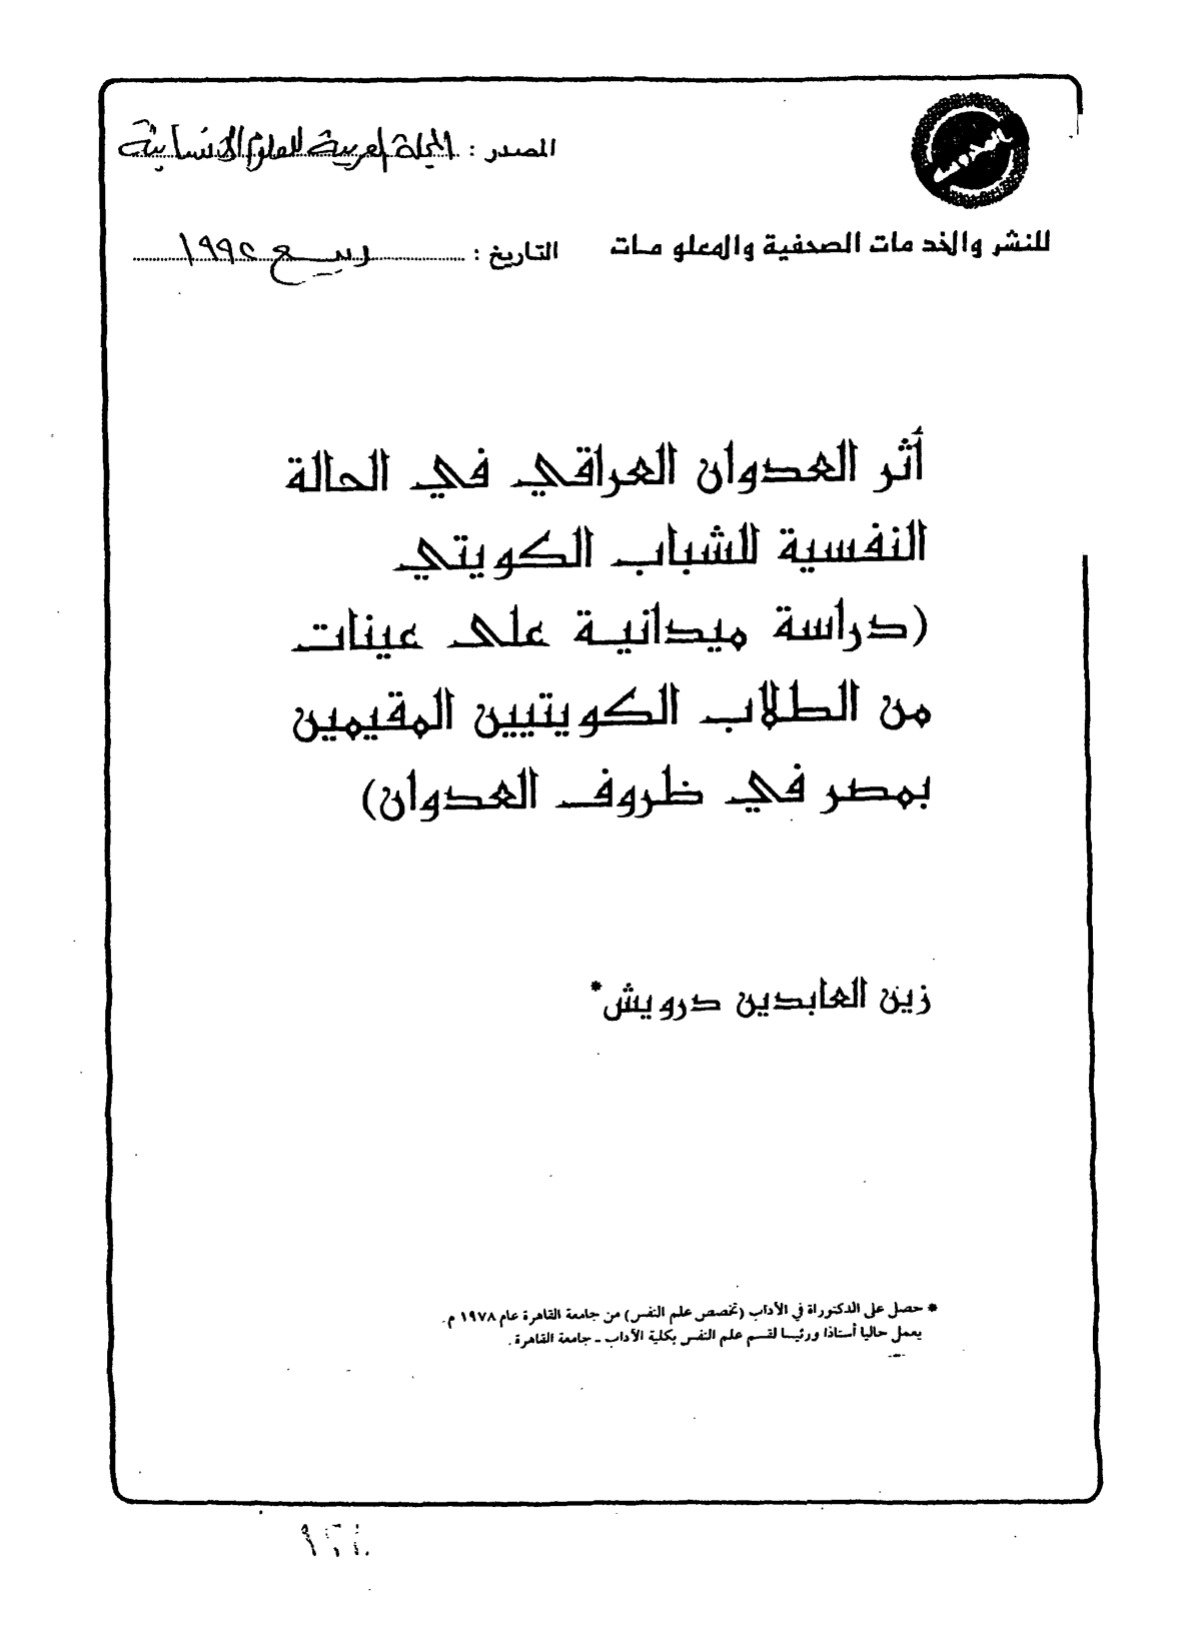 المصدر : المجلة العربية للعلوم الإنسانية
للنشر والخدمات الصحفية والمعلومات
التاريخ : ربيع ١٩٩٢
أثر العدوان العراقي في الحالة
النفسية للشباب الكويتي
(دراسة ميدانية على عينات
من الطلاب الكويتيين المقيمين
بمصر في ظروف العدوان)
زين العابدين درويش*
* حصل على الدكتوراة في الآداب (تخصص علم النفس) من جامعة القاهرة عام ١٩٧٨ م.
يعمل حاليا أستاذا ورئيسا لقسم علم النفس بكلية الآداب ـ جامعة القاهرة .